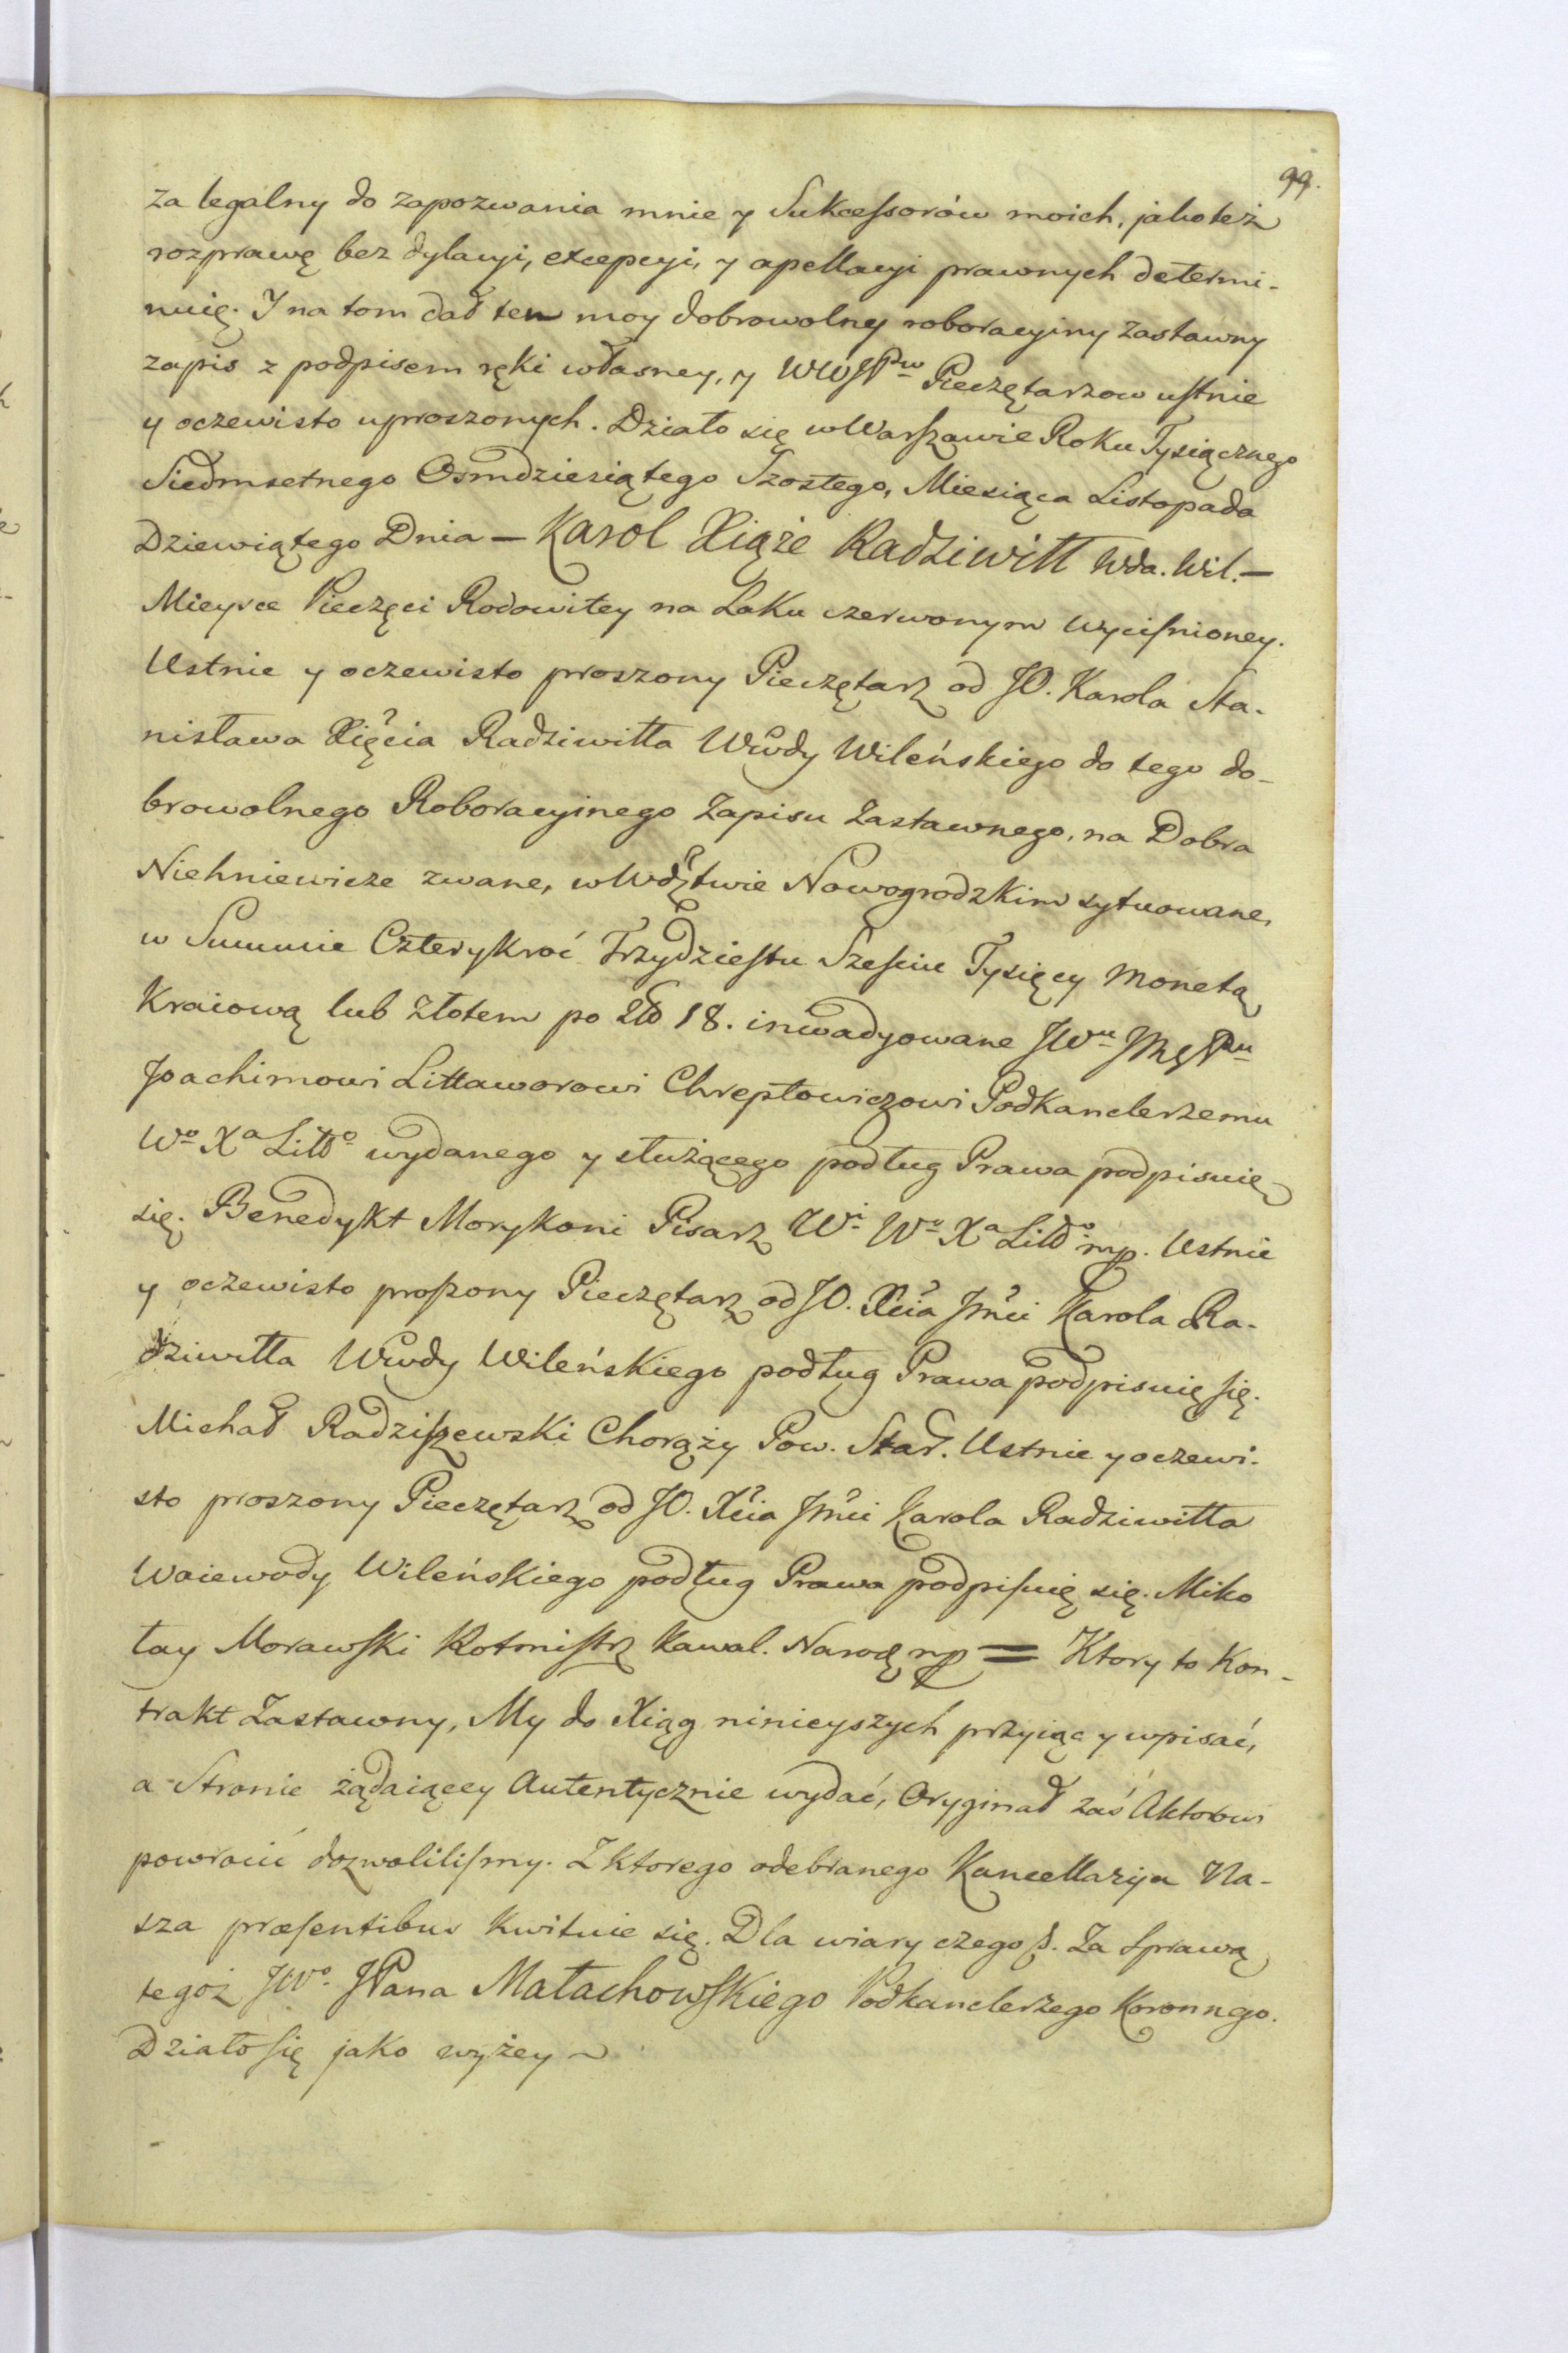 99.
za legalny do zapozwania mnie y Sukcessorów moich, jako też
rozprawę bez dylacyi, excepcyi, y apellacyi prawnych determi-
nuię. Y na tom dał ten moy dobrowolny roboracyiny zastawny
zapis z podpisem ręki własney, y WWJPw Pieczętarzow ustnie
y oczewisto uproszonych. Działo się w Warszawie Roku Tysiącznego
Siedmsetnego Osmdziesiątego Szostego, Miesiąca Listopada
Dziewiątego Dnia — Karol Xiąże Radziwiłł Wda. Wil. —
Mieysce Pieczęci Rodowitey na Laku czerwonym wyciśnioney.
Ustnie y oczewisto proszony Pieczętarz od JO. Karola Sta-
nisława Xięcia Radziwiłła Wwdy Wileńskiego do tego do-
browolnego Roboracyinego Zapisu Zastawnego, na Dobra
Niehniewicze zwane, w Wdztwie Nowogrodzkim sytuowane,
w Summie Czterykroć Trzydziestu Sześciu Tysięcy Monetą
Kraiową lub złotem po Zło 18. inwadyowane JWu Jmę Panu
Joachimowi Littaworowi Chreptowiczowi Podkanclerzemu
Wo Xa Litto wydanego y służącego podług Prawa podpisuię
się. Benedykt Morykoni Pisarz Wi Wo Xa Litto mp. Ustnie
y oczewisto proszony Pieczętarz od JO. Xcia Jmci Karola Ra-
dziwiłła Wwdy Wileńskiego podług Prawa podpisuię się.
Michał Radziszewski Chorąży Pow. Star. Ustnie y oczewi-
sto proszony Pieczętarz od JO. Xcia Jmci Karola Radziwiłła
Woiewody Wileńskiego podług Prawa podpisuię się. Miko
łay Morawski Rotmistrz Kawal. Narod mp = Ktory to Kon-
trakt Zastawny, My do Xiąg ninieyszych przyiąc y wpisać,
a Stronie żądaiącey Autentycznie wydać, Oryginał zaś Aktorow
powrocić dozwolilismy. Z ktorego odebranego Kancellaryja Na-
sza præsentibus kwituie się. Dla wiary czego p. Za sprawą
tegoż JWo. JPana Małachowskiego Podkanclerzego Koronngo.
Działo się jako wyżey ~